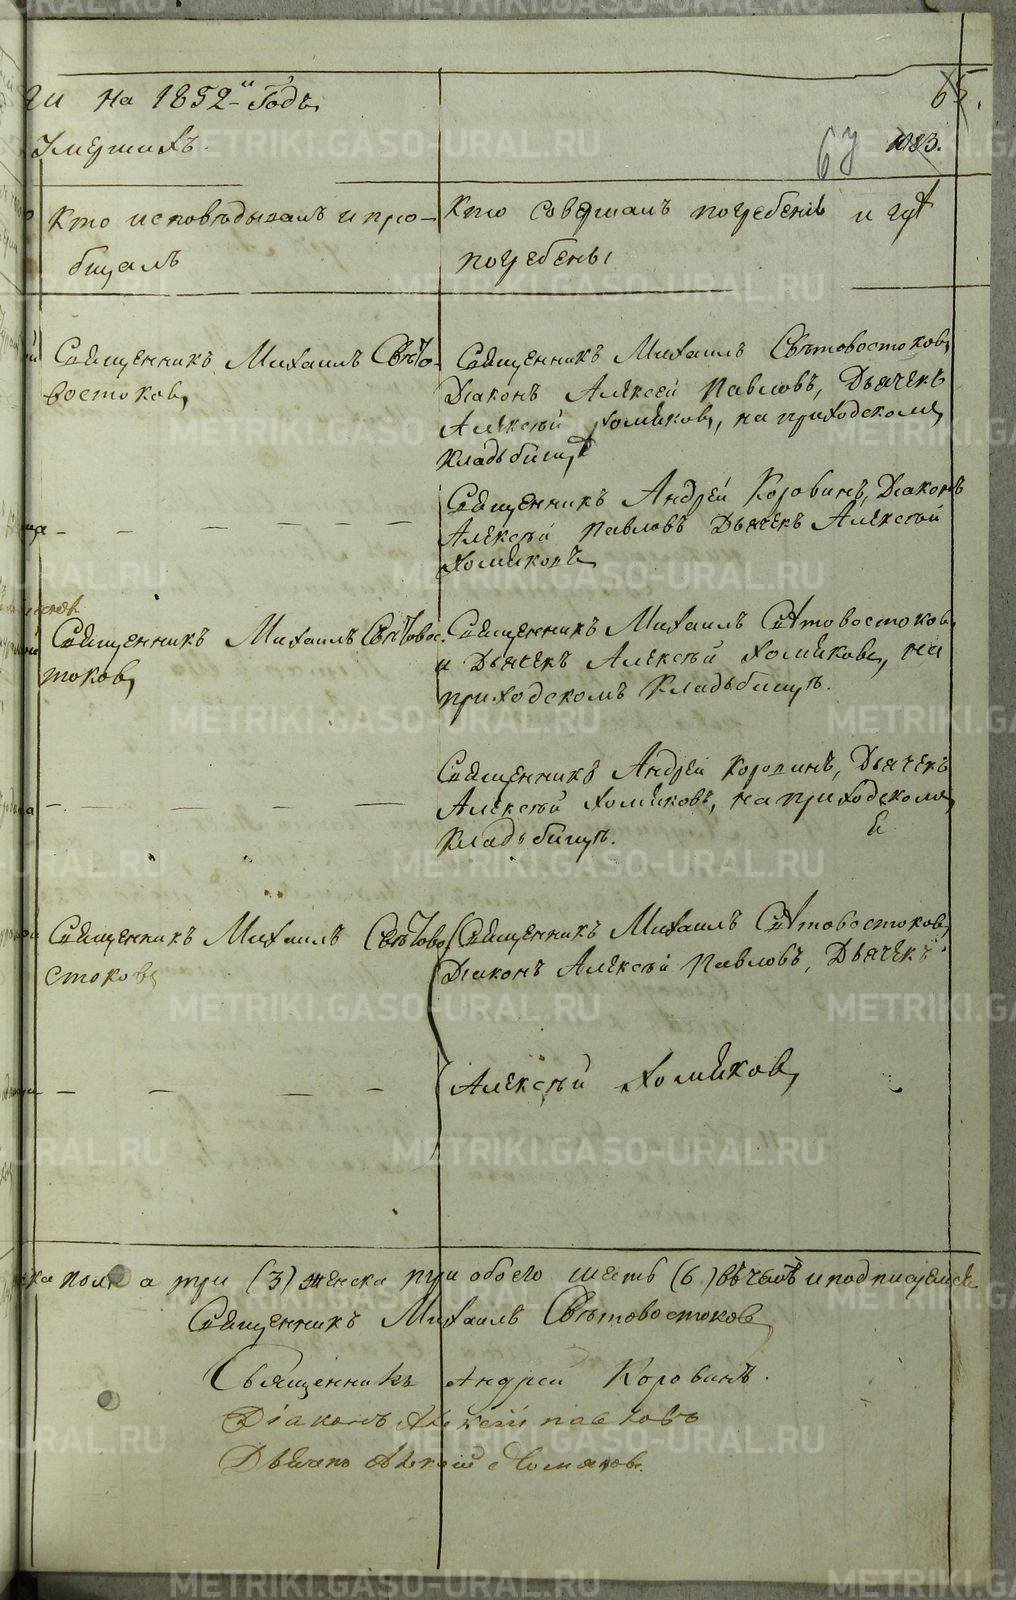 ги на 1852-й Годъ,
Умершихъ.
65.
67
1083.
Кто исповѣдывалъ и прио-
бщалъ
Кто Совершалъ погребеніе и гдѣ
погребены
Священникъ Михаилъ Свѣто-
востоковъ,
Священникъ Михаилъ Свѣтовостоковъ,
Діаконъ Алексей Павловъ, Дьячекъ
Алексѣй Хомяковъ, на приходскомъ
кладьбищѣ
Священникъ Андрей Коровинъ, Діаконъ
Алексѣй Павловъ Дьячекъ Алексѣй
Хомяковъ
Священникъ Михаилъ Свѣтовос-
токовъ,
Священникъ Михаилъ Свѣтовостоковъ,
и Дьячекъ Алексѣй Хомяковъ, на
приходскомъ кладьбищѣ.
Священникъ Андрей Коровинъ, Дьячекъ
Алексѣй Хомяковъ, на приходскомъ,
кладьбищѣ.
Священникъ Михаилъ Свѣтово
стоковъ
Священникъ Михаилъ Свѣтовостоковъ,
Діаконъ Алексѣй Павловъ, Дьячекъ
Алексѣй Хомяковъ,
ка пола три (3) женска три обоего шесть (6) въ чемъ и подписуемся
Священникъ Михаилъ Свѣтовостоковъ
Священникъ Андрей Коровинъ.
Діаконъ Алексѣй Павловъ
Дьячекъ Алексѣй Хомяковъ.
METRIKI.GASO-URAL.RU